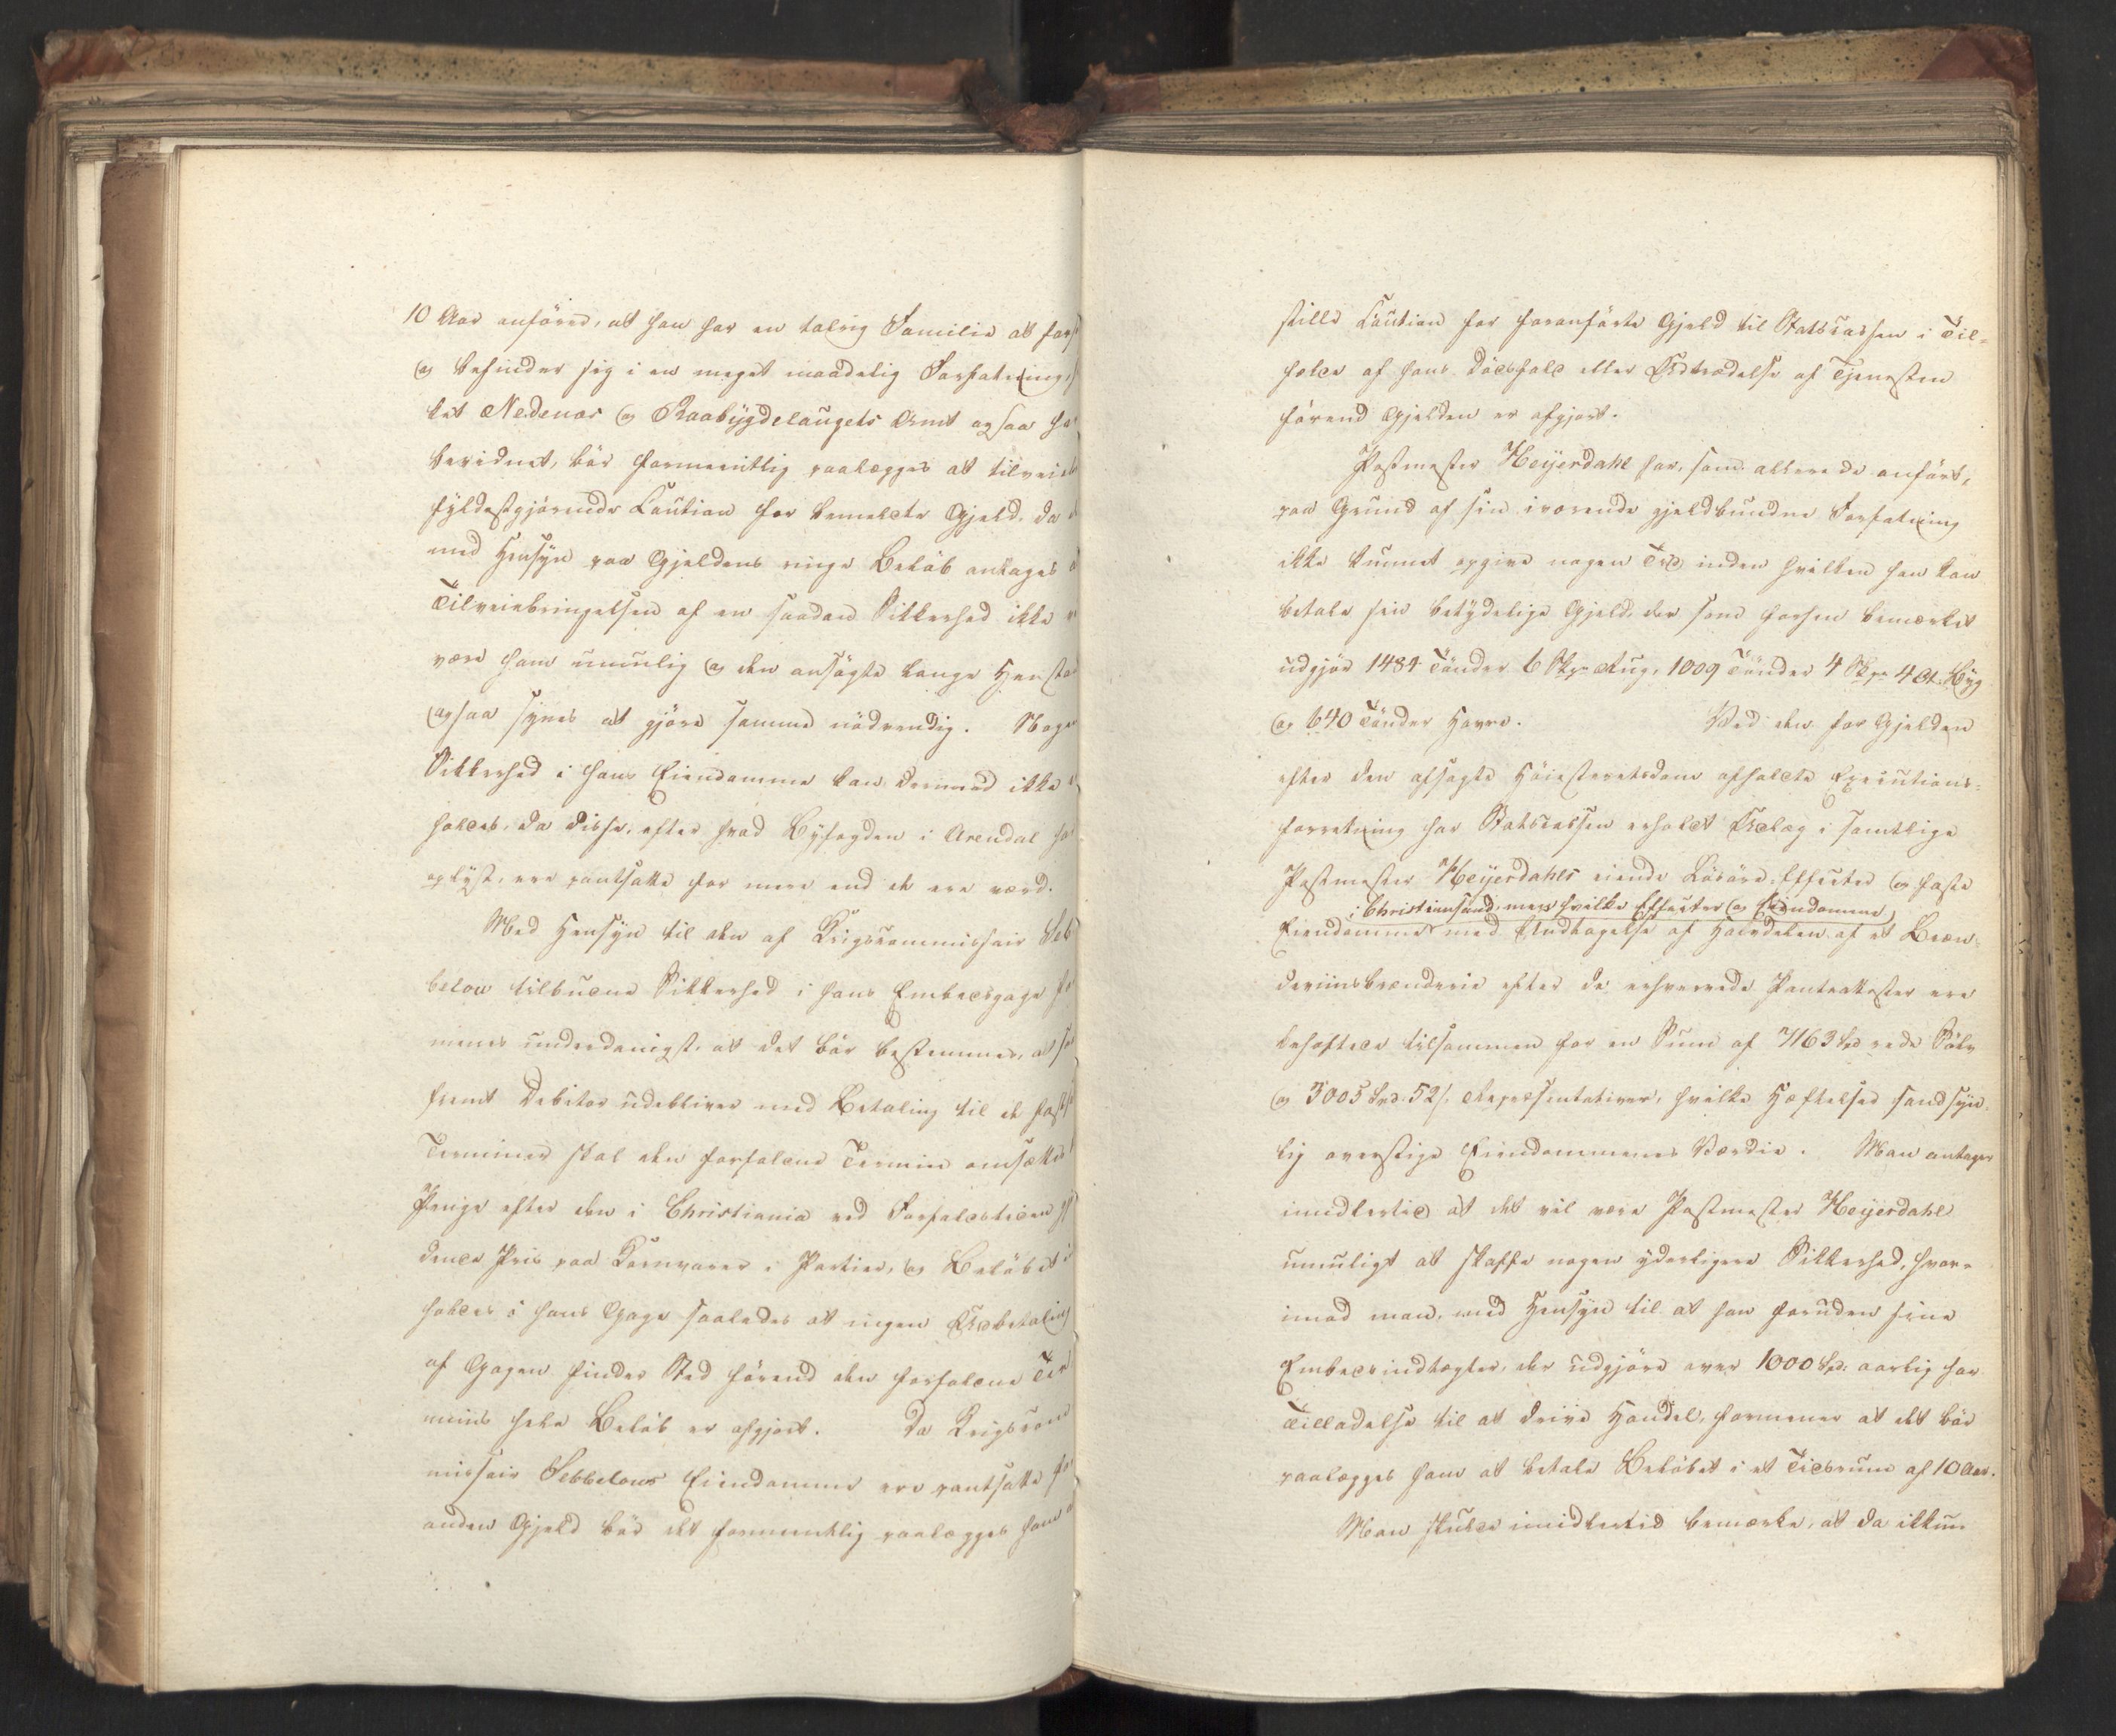 10 Aar anføres, at han har en talrig Familie at fors
og befinder sig i en meget maadelig Forfatning,
ket Nedenæs og Raabÿgdelaugets Amt ogsaa ha
bevidnet, bør formeentlig paalægges at tilveie
fÿldestgjørende Caution for bemeldte Gjeld, da
med Hensÿn paa Gjeldens ringe Beløb antages
Tilveiebringelsen af en saadan Sikkerhed ikke
være ham umulig og den ansøgte lange Hensta
ogsaa sÿnes at gjøre samme nødvendig. Noge
Sikkerhed i hans Eiendomme kan derimod ikke
holdes, da disse, efter hvad Bÿfogden i Arendal ha
oplÿst, ere pantsatte for mere end de ere værd.
Med Hensÿn til den af Krigscommissair Seb
below tilbudne Sikkerhed i hans Embedsgage
menes underdanigst, at det bør bestemmes, at så
fremt Debitor udebliver med Betaling til de fasts
Terminer skal den forfaldne Termin omsættes
Penge efter den i Christiania ved Forfaldstiden gj
dende Priis paa Kornvarer i Partier, og Beløbet i
holdes i hans Gage saaledes at ingen Udbetaling
af Gagen finder Sted førend den forfaldne Ter
miins hele Beløb er afgjort. Da Krigscom
missair Sebbelows Eiendomme ere pantsatte for
anden Gjeld bør det formeentlig paalægges ham
stille Caution for foranførte Gjeld til Statscassen i Til-
fælde af hans Dødsfald eller Udtrædelse af Tjenesten
førend Gjelden er afgjort.
Postmester Heÿerdahl har, som allerede anført,
paa Grund af sin iværende gjeldbundne Forfatning
ikke kunnet opgive nogen Tid inden hvilken han kan
betale sin betÿdelige Gjeld, der som forhen bemærket
udgjør 1484 Tønder 6 Skpr Rug, 1009 Tønder 4 Skpr 4 Ot. Bÿg
og 640 Tønder Havre. Ved den for Gjelden
efter den afsagte Høiesteretsdom afholdte Executions-
forretning har Statscassen erholdt Udlæg i samtlige
Postmester Heÿerdahls eiende Løsøre, Effecter og faste
i Christiansund, men hvilke Effecter og Eiendomme,
Eiendomme med Undtagelse af Halvdelen af et Bræn-
deviinsbrænderie efter de erhvervede Pantattester ere
behæftede tilsammen for en Sum af 7163 Spd rede Sølv
og 3005 Spd. 52 s. Repræsentativer, hvilke Hæftelser sandsÿn-
lig overstige Eiendommenes Værdie. Man antager
imidlertid at det vil være Postmester Heÿerdahl
umuligt at skaffe nogen ÿderligere Sikkerhed, hvor-
imod man, med Hensÿn til at han foruden sine
Embedsindtægter, der udgjøre over 1000 Spd. aarlig har
Tilladelse til at drive Handel, formener at det bør
paalægges ham at betale Beløbet i et Tidsrum af 10 Aar.
Man skulde imidlertid bemærke, at da ikkun